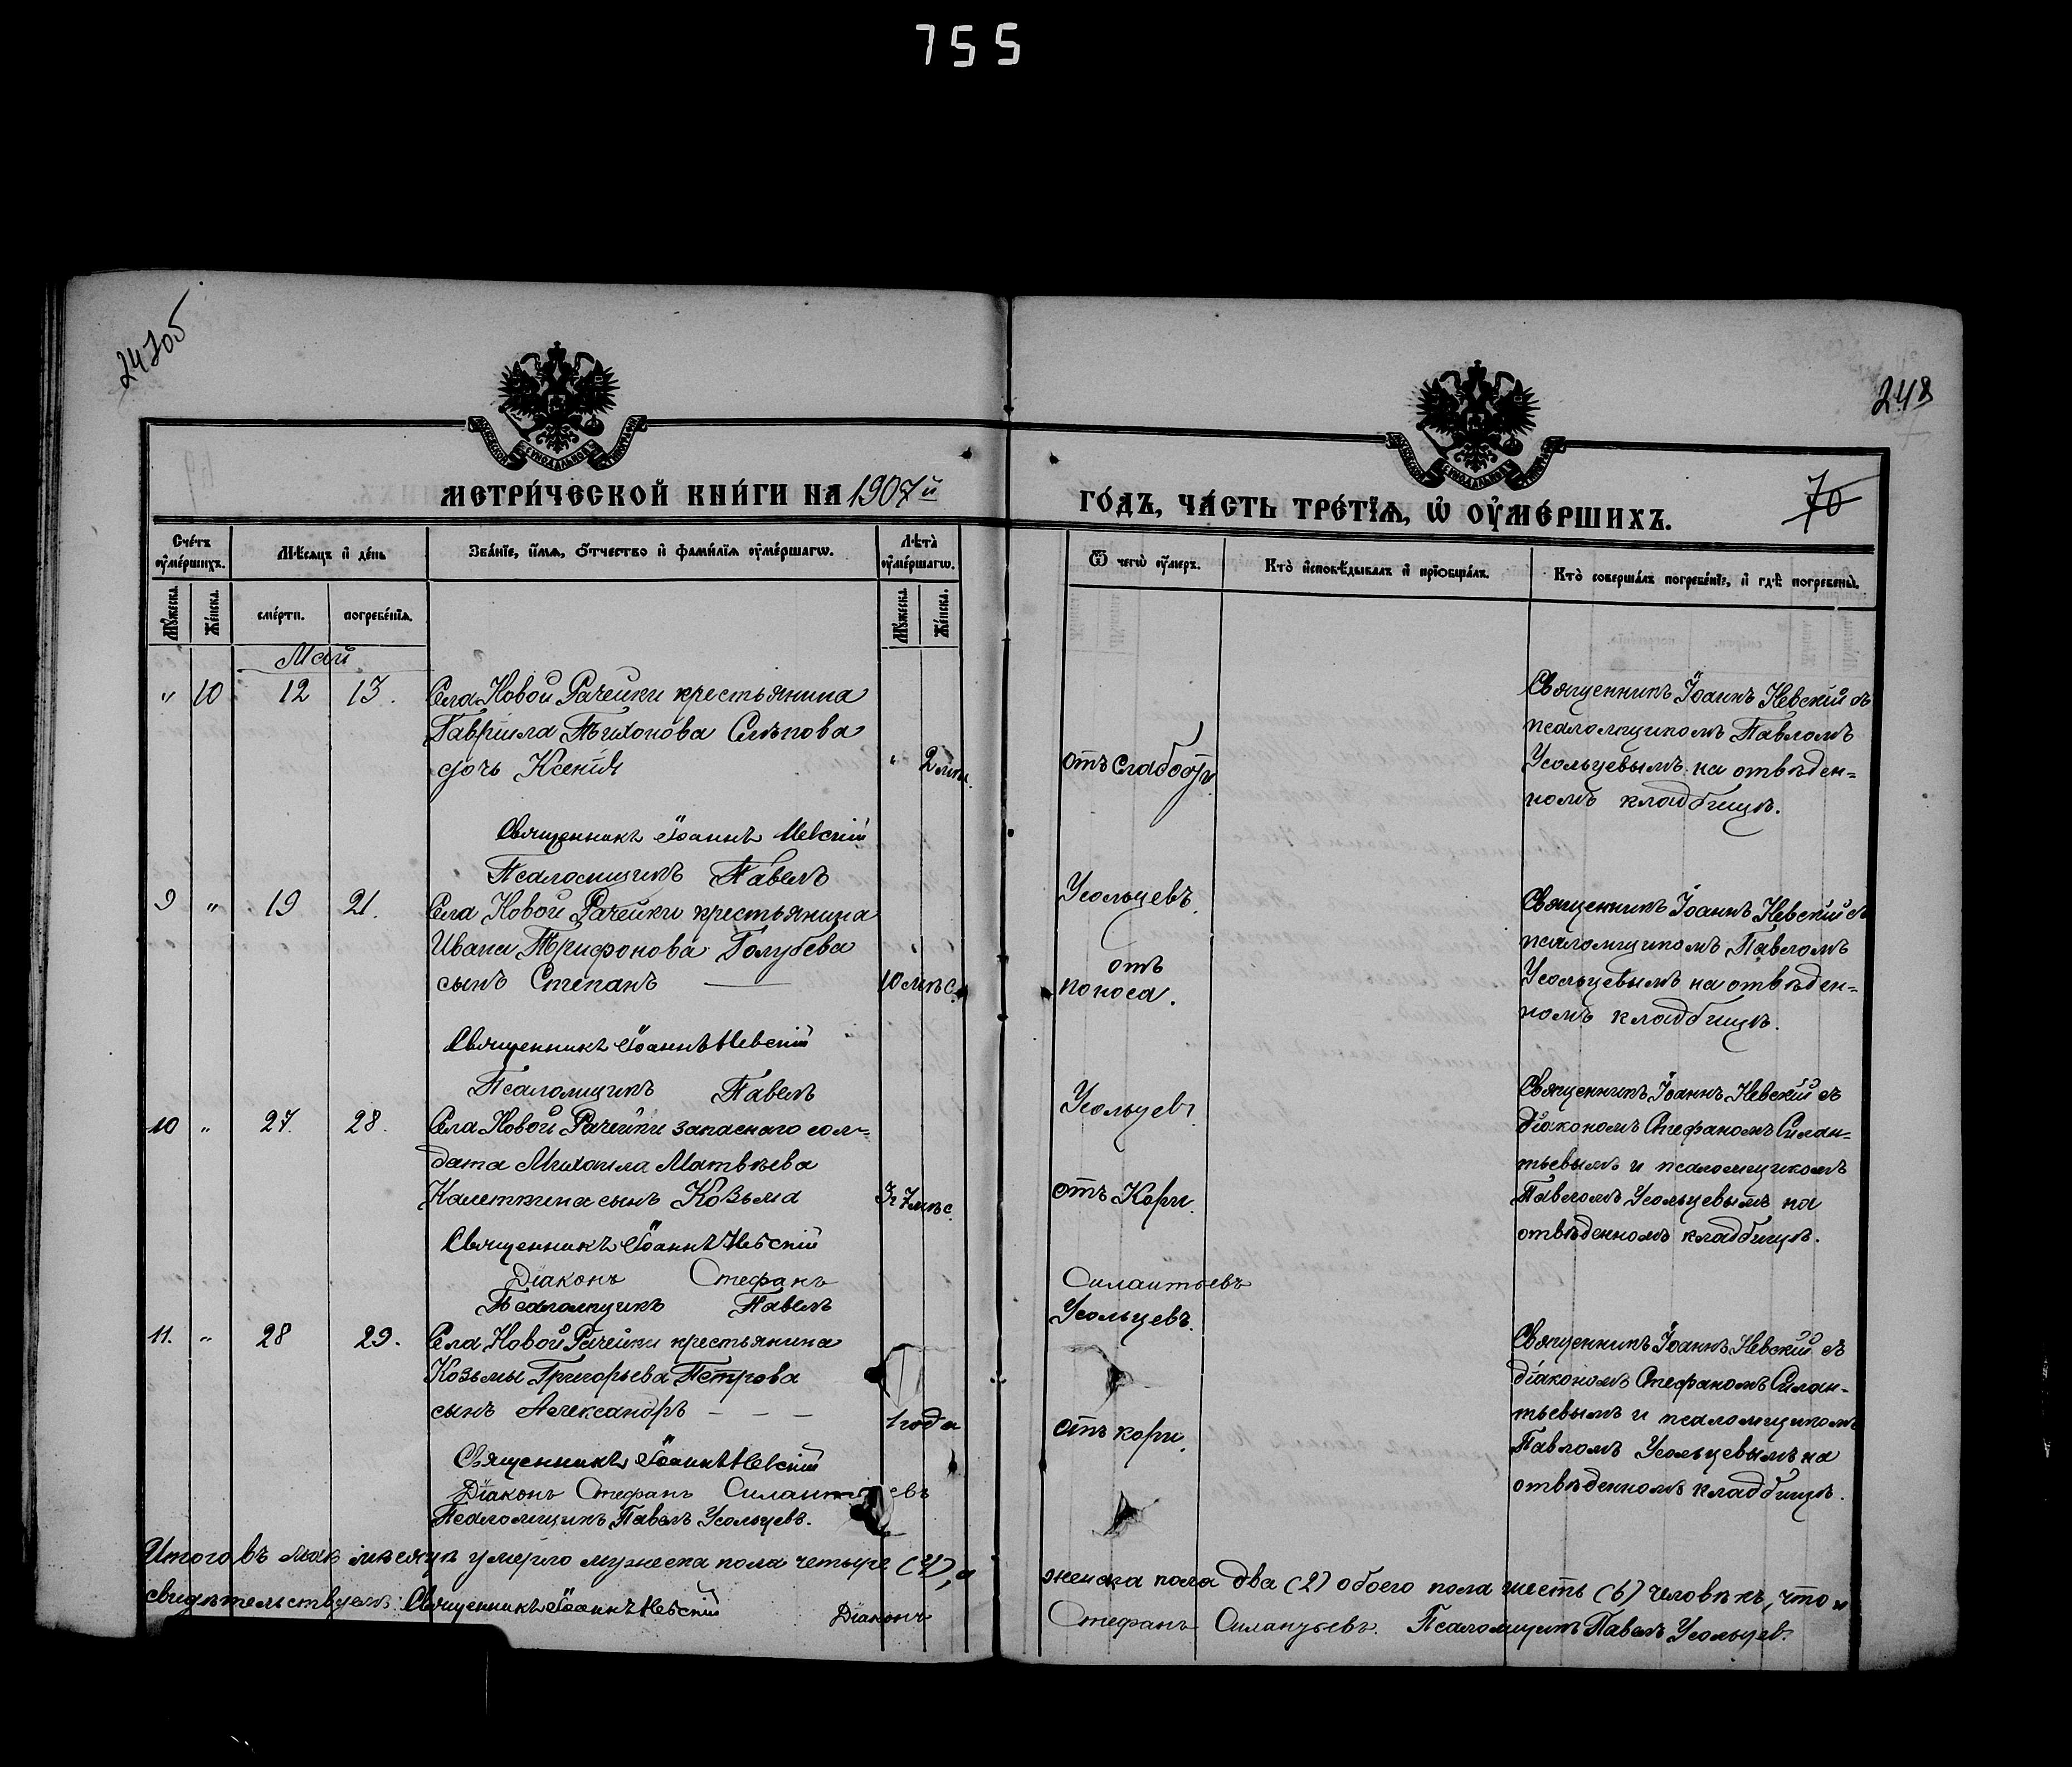 755
247об
248
70
МЕТРИ́ЧЕСКОЙ КНИ́ГИ НА 1907й
ГО́ДЪ, ЧА́СТЬ ТРЕ́ТЇѦ, Ѡ҆ ОУ҆МЕ́РШИХЪ.
Сче́тъ оу҆ме́ршихъ.
Мѣ́сяцъ и҆ де́нь
Зва́нїе, и҆́мѧ, ѻ҆́тчество и҆ фами́лїѧ оу҆ме́ршагѡ.
Лѣ́та̀ оу҆ме́ршагѡ.
Ѿ чегѡ̀ оу҆́меръ.
Кто̀ и҆сповѣ́дывалъ и҆ прїѡбща́лъ.
Кто̀ соверша́лъ погребе́нїе, и҆ гдѣ̀ погребены̀.
Мꙋ́жеска.
Же́нска.
сме́рти.
погребе́нїѧ.
Мꙋ́жеска.
Же́нска.
Май
" 10 12 13. Села Новой Рачейки крестьянина
Гавріила Тихонова Слѣпова
дочь Ксенія " 2 лѣтъ. отъ слабости.
Священникъ Іоаннъ Невскій съ
псаломщикомъ Павломъ
Усольцевымъ на отвѣден=
номъ кладбищѣ.
Священникъ Іоаннъ Невскій
Псаломщикъ Павелъ Усольцевъ.
9 " 19 21. Села Новой Рачейки крестьянина
Ивана Трифонова Голубева
сынъ Степанъ 10 мѣс. отъ
поноса.
Священникъ Іоаннъ Невскій съ
псаломщикомъ Павломъ
Усольцевымъ на отвѣден=
номъ кладбищѣ.
Священникъ Іоаннъ Невскій
Псаломщикъ Павелъ Усольцевъ.
10 " 27. 28. Села Новой Рачейки запаснаго сол=
дата Михаила Матвѣева
сынъ Козьма 7 мѣс. отъ Кори.
Священникъ Іоаннъ Невскій съ
діакономъ Стефаномъ Силан=
тьевымъ и псаломщикомъ
Павломъ Усольцевымъ на
отвѣденномъ кладбищѣ.
Священникъ Іоаннъ Невскій
Діаконъ Стефанъ Силантьевъ
Псаломщикъ Павелъ Усольцевъ.
11. " 28 29. Села Новой Рачейки крестьянина
Козьмы Григорьева Петрова
сынъ Александръ – – – 1 года отъ кори.
Священникъ Іоаннъ Невскій съ
діакономъ Стефаномъ Силан-
тьевымъ и псаломщикомъ
Павломъ Усольцевымъ на
отвѣденномъ кладбищѣ.
Священникъ Іоаннъ Невскій
Діаконъ Стефанъ Силантьевъ
Псаломщикъ Павелъ Усольцевъ.
Итого въ маѣ мѣсяцѣ умерло мужеска пола четыре (4), и женска пола два (2) обоего пола шесть (6) человѣкъ, что и
свидѣтельствуемъ: Священникъ Іоаннъ Невскій Діаконъ Стефанъ Силантьевъ. Псаломщикъ Павелъ Усольцев.